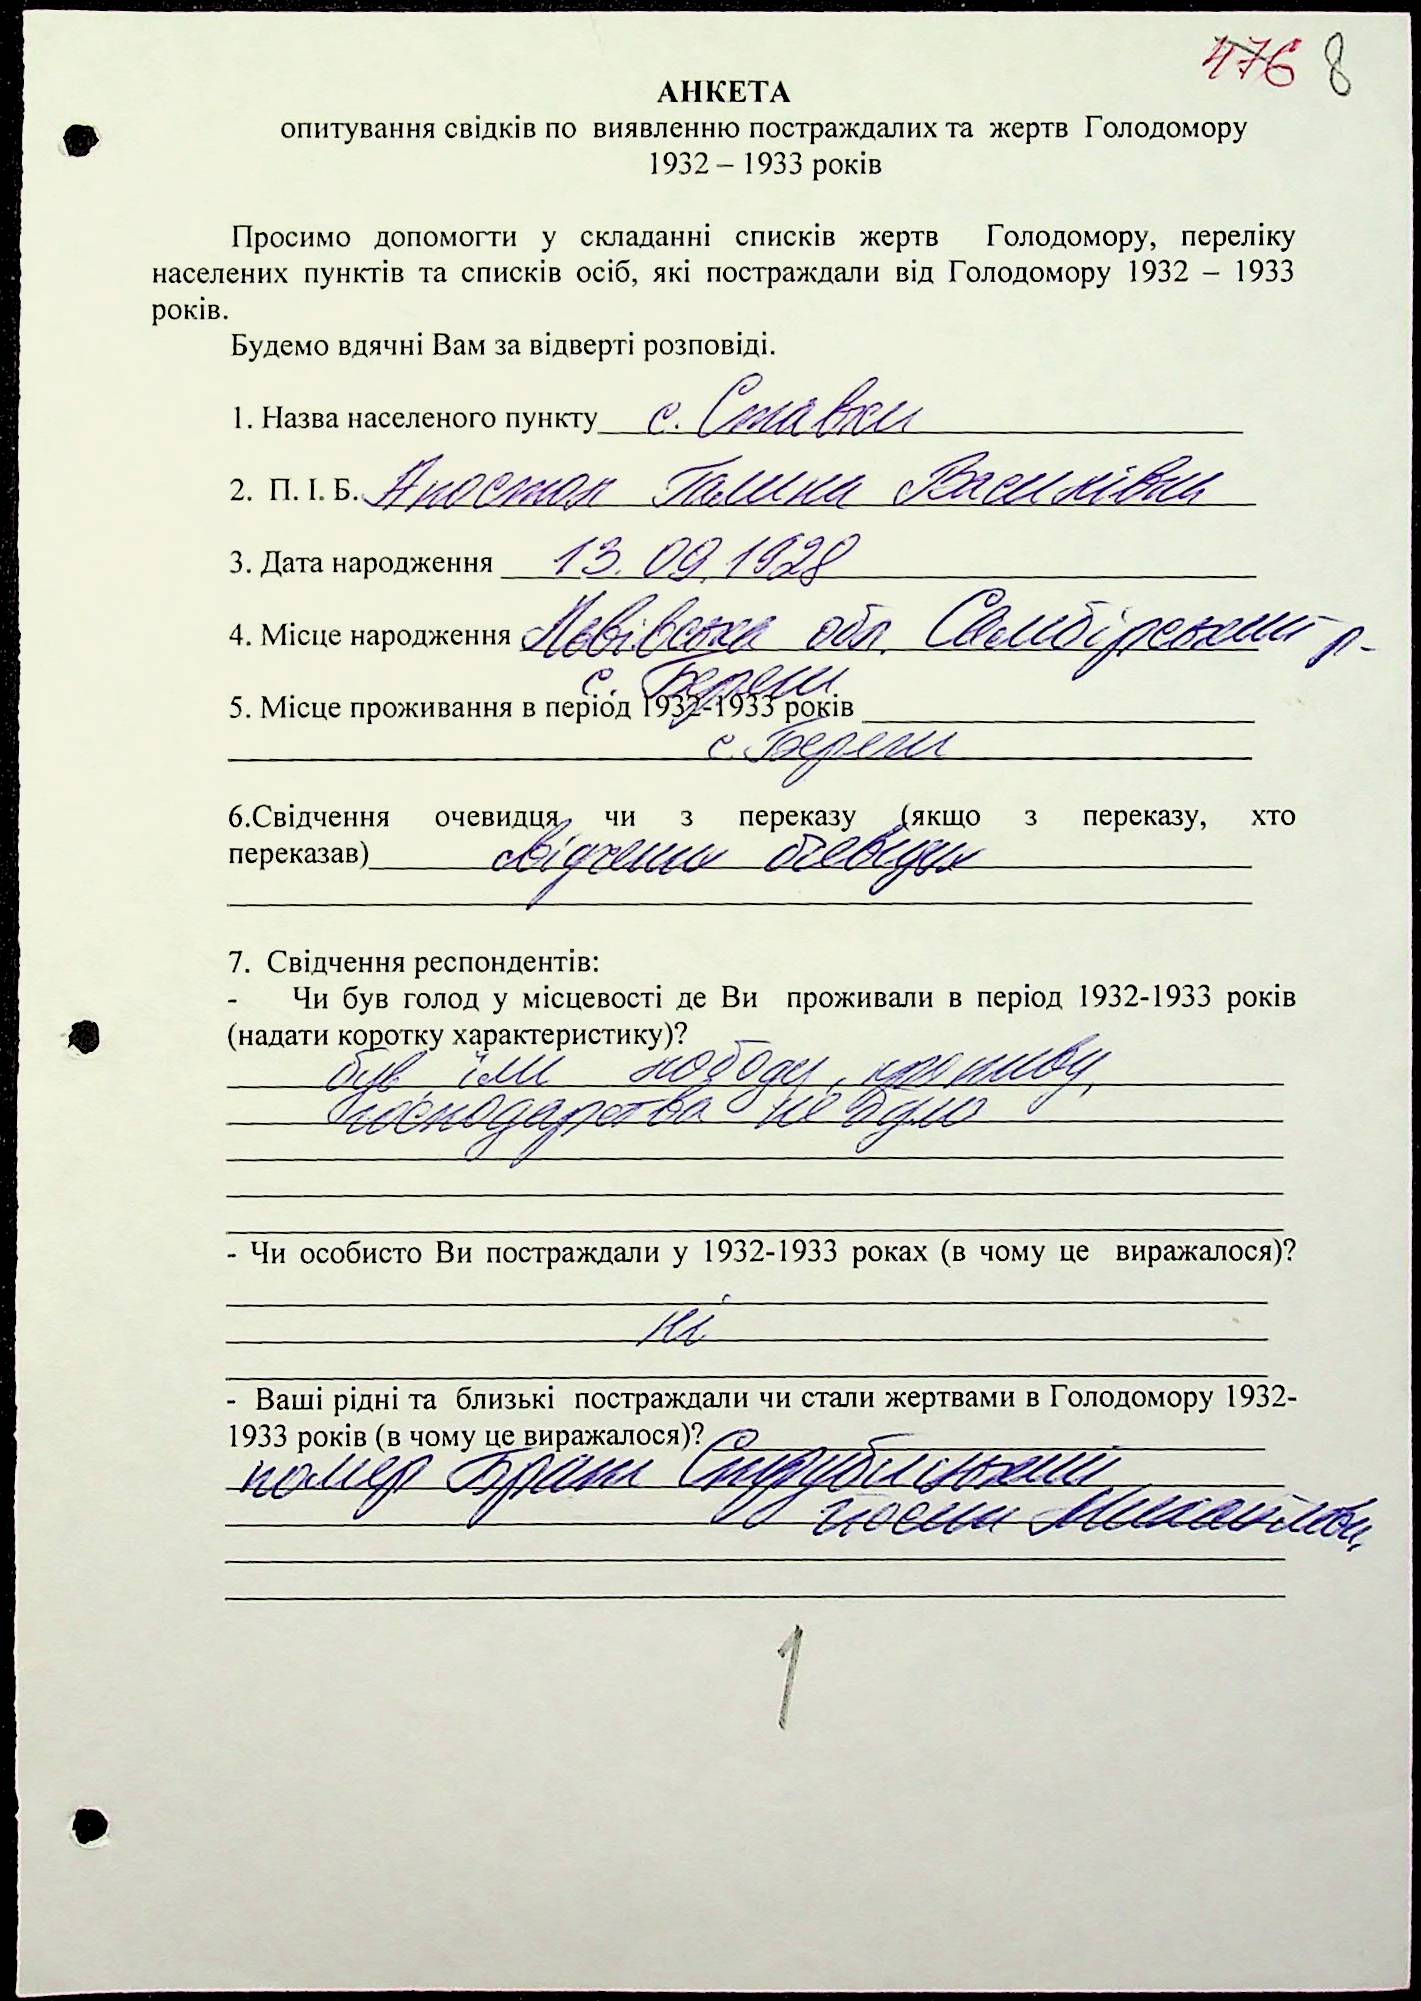 476 8
АНКЕТА
опитування свідків по виявленню постраждалих та жертв Голодомору
1932 – 1933 років
Просимо допомогти у складанні списків жертв Голодомору, переліку
населених пунктів та списків осіб, які постраждали від Голодомору 1932 – 1933
років.
Будемо вдячні Вам за відверті розповіді.
1. Назва населеного пункту с. Ставки
2. П. І. Б. Апостол Галина Василівна
3. Дата народження 13.09.1928
4. Місце народження Львівська обл. Самбірський р-
с. Береги
5. Місце проживання в період 1932-1933 років
с. Береги
6.Свідчення очевидця чи з переказу (якщо з переказу, хто
переказав) свідчення очевидця
7. Свідчення респондентів:
- Чи був голод у місцевості де Ви проживали в період 1932-1933 років
(надати коротку характеристику)?
був, їли лободу, кропиву,
господарства не було
- Чи особисто Ви постраждали у 1932-1933 роках (в чому це виражалося)?
ні
- Ваші рідні та близькі постраждали чи стали жертвами в Голодомору 1932-
1933 років (в чому це виражалося)?
помер брат
1